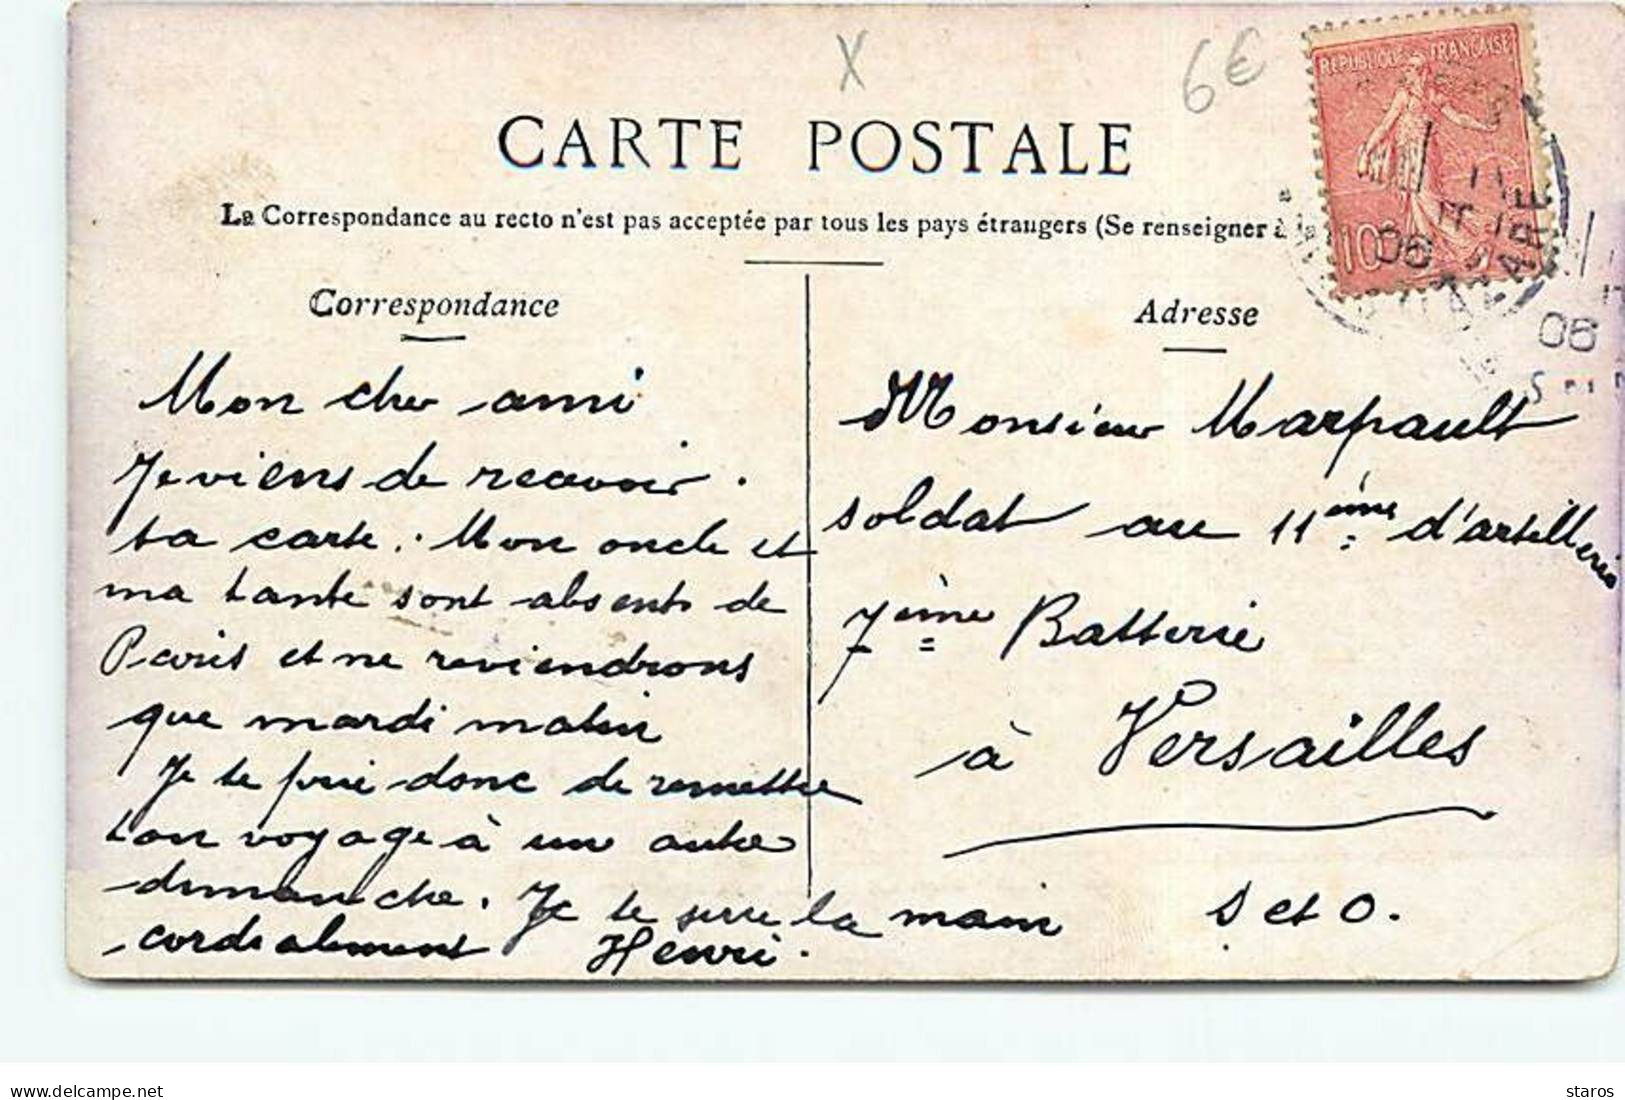 X
6€
REPUBLIQUE FRANÇAISE
10
06
CARTE POSTALE
La Correspondance au recto n'est pas acceptée par tous les pays étrangers (Se renseigner à la
06
Correspondance
Mon cher ami
Je viens de recevoir
ta carte. Mon oncle et
ma tante sont absents de
Paris et ne reviendrons
que mardi matin
Je te prie donc de remettre
ton voyage à un autre
dimanche. Je te serre la main
cordialement Henri.
Adresse
Monsieur Marpault
soldat au 11ème d'artillerie
7ème Batterie
à Versailles
S et O.
Delcampe.net
staros